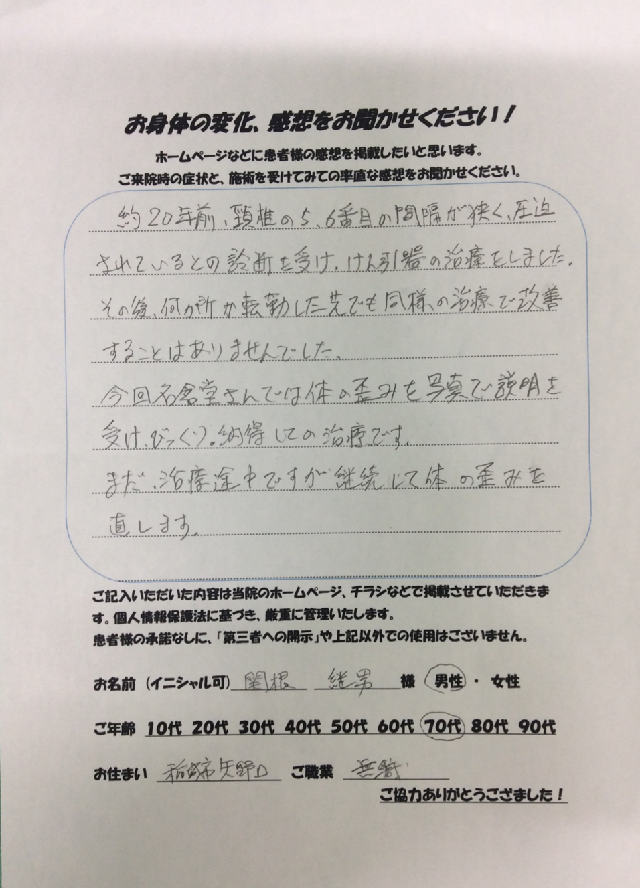 お身体の変化、感想をお聞かせください！
ホームページなどに患者様の感想を掲載したいと思います。
ご来院時の症状と、施術を受けてみての率直な感想をお聞かせください。
約20年前、頸椎の5、6番目の間隔が狭く、圧迫
されているとの診断を受け、けん引器の治療をしました。
その後、何か所か転勤した先でも同様の治療で改善
することはありませんでした。
今回石倉堂さんでは体の歪みを写真で説明を
受け、びっくり。納得しての治療です。
まだ、治療途中ですが継続して体の歪みを
直します。
ご記入いただいた内容は当院のホームページ、チラシなどで掲載させていただきま
す。個人情報保護法に基づき、厳重に管理いたします。
患者様の承諾なしに、「第三者への開示」や上記以外での使用はございません。
お名前（イニシャル可） 関根 継男 様 男性・女性
ご年齢 10代 20代 30代 40代 50代 60代 70代 80代 90代
お住まい 稲城市矢野口 ご職業 無職
ご協力ありがとうござました！